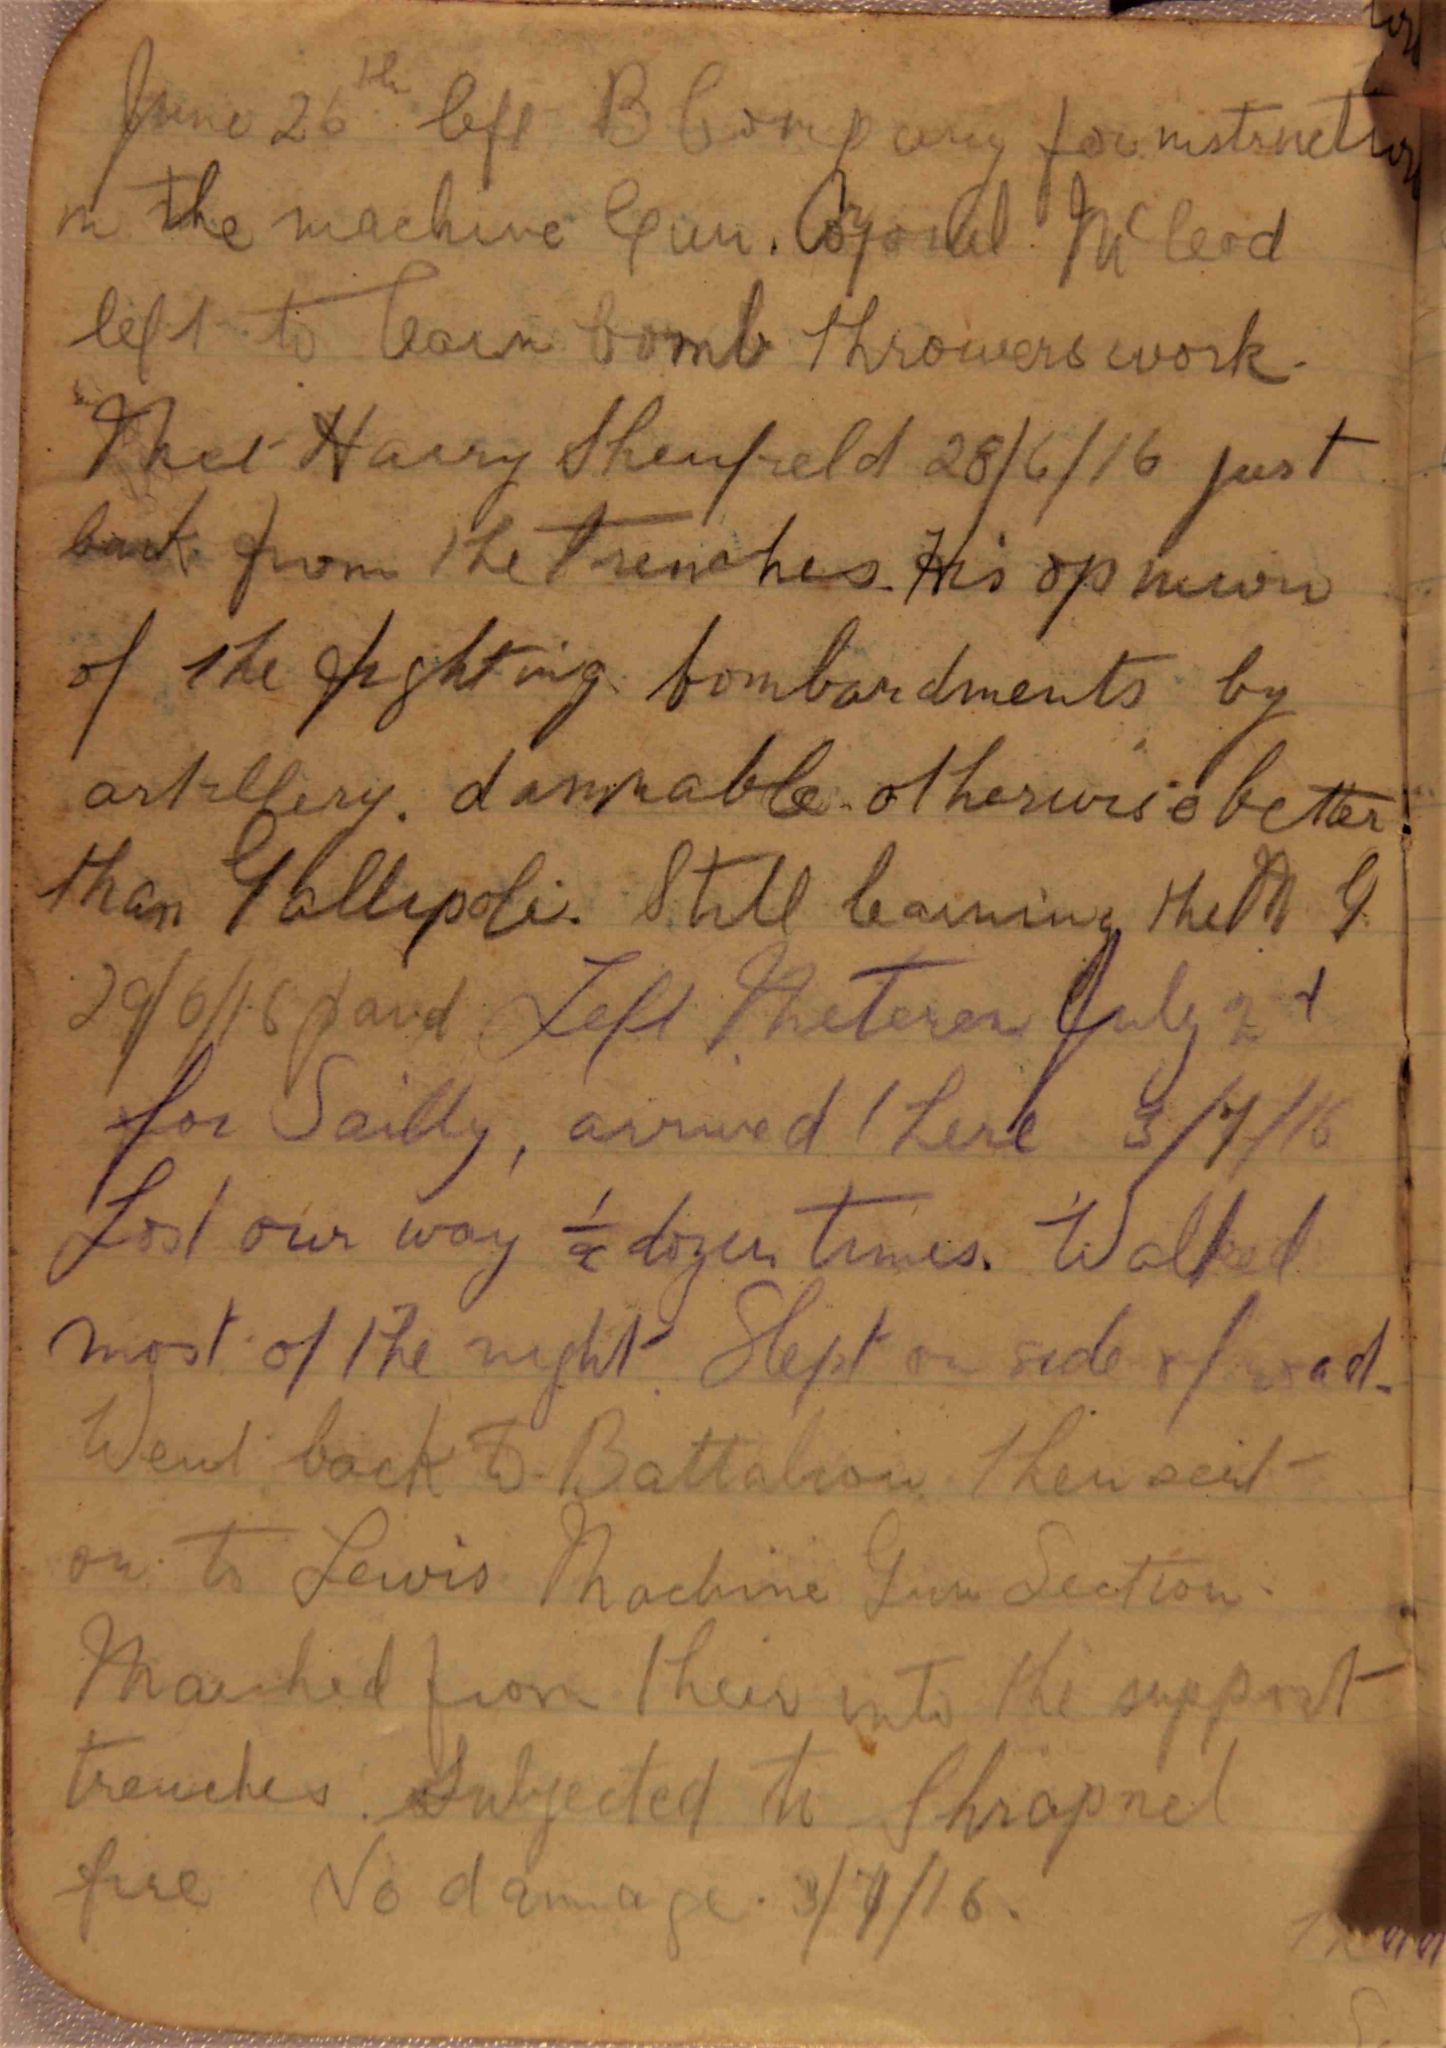 June 26th left B Company for instruction
in the machine Gun. Corporal McLeod
left to learn bomb throwers work.
Met Harry Shenfield 28/6/16 just
back from the trenches. His opinion
of the fighting bombardments by
artillery. damnable. otherwise better
than Gallipoli. Still learning the M G
29/6/16 paid Left Meteren July 2nd
for Sailly, arrived there 3/7/16
Lost our way 1/2 dozen times. Walked
most of the night. Slept on side of road.
Went back to Battalion then sent
on to Lewis Machine Gun Section.
Marched from their into the support
trenches. Subjected to Shrapnel
fire No damage. 3/7/16.